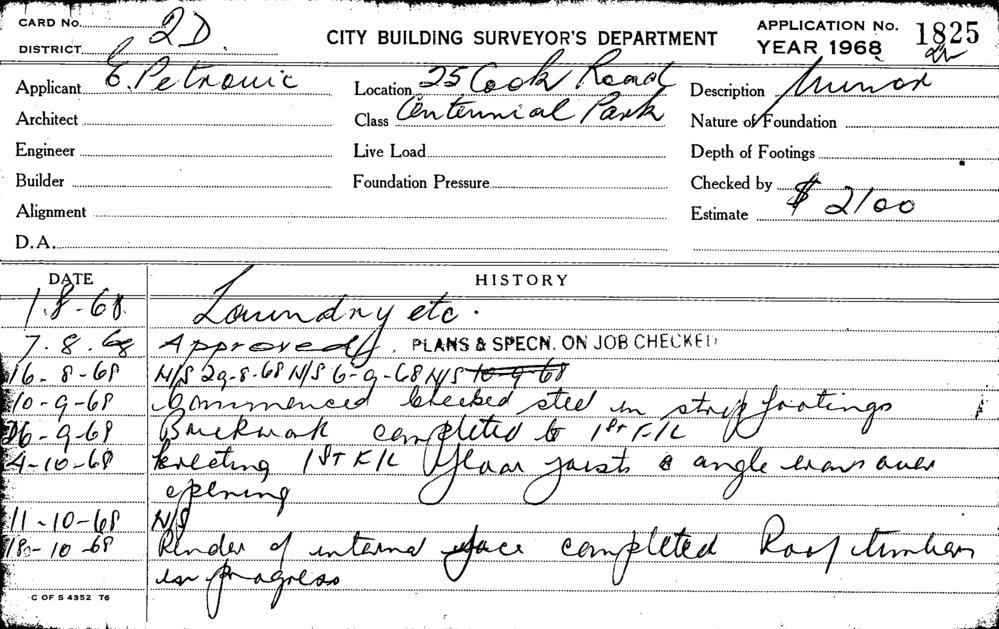 CARD No. 2D.
DISTRICT
CITY BUILDING SURVEYOR'S DEPARTMENT
APPLICATION No. 1825
YEAR 1968
Applicant E. Petrovic
Location 25 Cook Road
Description Minor
Architect
Class Centennial Park
Nature of Foundation
Engineer
Live Load
Depth of Footings
Builder
Foundation Pressure
Checked by
Alignment
Estimate $ 2100
D.A.
DATE HISTORY
1.8-68. Laundry etc.
7.8.68 Approved. PLANS & SPECN. ON JOB CHECKED
16-8-68 N/S 29-8-68 N/S 6-9-68 N/S 10-9-68
10-9-68 Commenced checked steel in strip footings
26-9-68 Brickwork completed to 1st F/L
4-10-68 Erecting 1st F/L floor joists & angle irons over
opening
11-10-68 N/S
18-10-68 Render of internal face completed Roof timbers
in progress
C OF S 4352 76